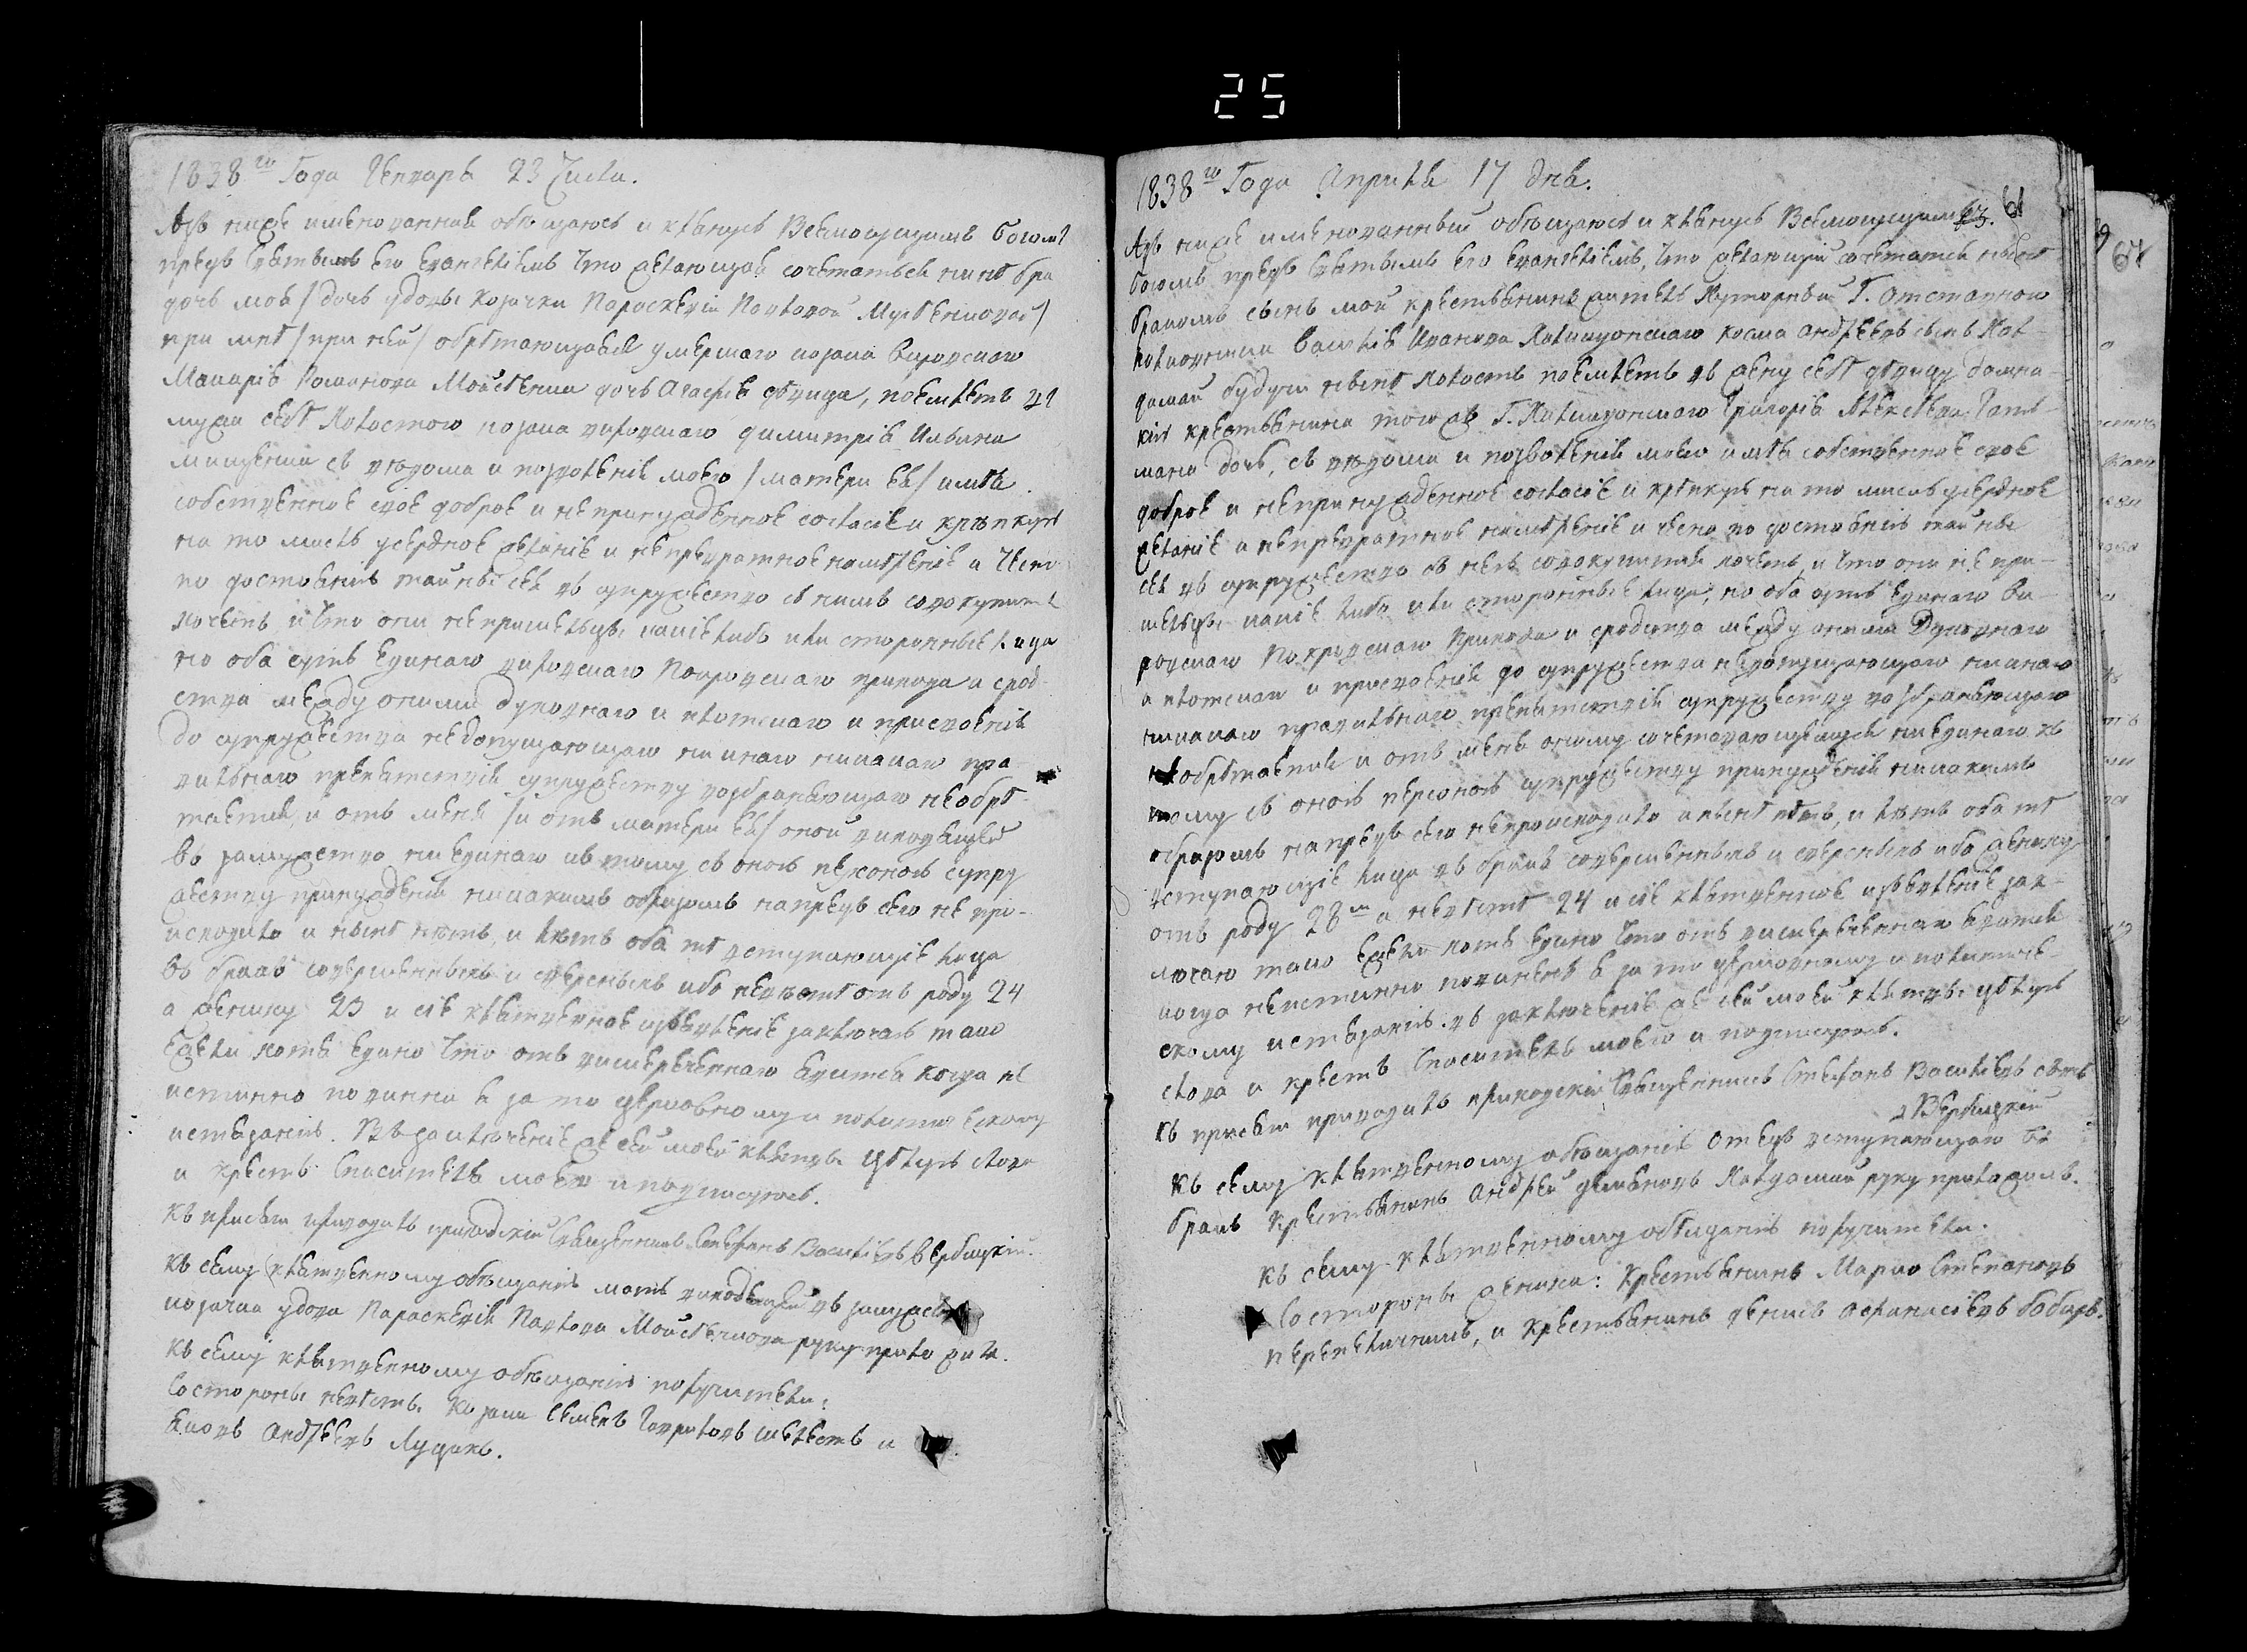 25
1838го Года Генваря 23 Числа.
Азъ ниже именованная обѣщаюсь и кляпусь Всемогущимъ Богомъ
предъ Святымъ Его Евангелиемъ что желающая сочетаться нинѣ бра
дочь моя / дочь удовы козачки Параскевіи Павловой Мусѣенковой /
при мнѣ / при ней / обрѣтающаяся умершаго козака
Макарія Романова Мойсѣенка дочь Агафія дѣвица, поемлетъ въ
мужа себѣ Холостого козака димитрія Ильина
съ вѣдома и позволенія моего / матери ея / имѣя
собственное свое доброе и непринужденное согласіе и крѣпкую
на то мысль усердное желаніе и непревратное намѣреніе и Чесно
по достоянію тайны сея въ супружество съ нимъ совокупитися
хочетъ и что они не пришельцы какіе либо или сторонные лица
но оба суть Единаго Покровскаго прихода и срод-
ства между оними духовнаго и плотскаго и присвоенія
до супружества недопущающаго ни инаго никакаго пра-
вильнаго препятствія супружеству возбраняющаго необрѣ-
тается, и отъ мене / и отъ матери ея / оной виходящей
въ замужество ни единаго къ тому съ оною персоною супру
жеству принужденія никакимъ образомъ напредъ сего не про-
исходило и нынѣ нѣтъ, и лѣтъ оба тѣ вступающіе лица
въ бракъ совершенныхъ и сверсныхъ ибо невѣстѣ отъ роду 24
а жениху 23 и сіе клятвенное изъявленіе заключаю тако
Ежели хотя едино что отъ вишереченнаго явится когда не
истинно повинна я за то церковному и политическому
истязанію. Въ заключеніе же сей моей клятвы цѣлую слова
и крестъ Спасителя моего и подписуюсь.
Къ присягѣ приводилъ приходскій Священникъ Стефанъ Василіевъ Вербицкій.
Къ сему клятвенному обѣщанію мать виходящей въ замужество
козачка удова Параскевія Павлова Мойсѣенкова руку приложила.
Къ сему клятвенному обѣщанію поручители:
Со стороны невѣсты. Козаки Семенъ Гавриловъ Шелестъ и
Яковъ Андреевъ Луцикъ.
1838го Года Апрѣля 17 дня.
61
Азъ ниже именованный обѣщаюсь и кляпусь Всемогущимъ
Богомъ предъ Святымъ Его Евангеліемъ, что желающій сочетатися нынѣ
бракомъ сынъ мой крестьянинъ житель Хуторный Г. Отставного
Василія Иванова Косма Андреевъ сынъ Хол-
будучи нынѣ холостъ поемлетъ въ жену себѣ дѣвицу Домна-
кію крестьянина того жъ Г. Григорія Алексѣева
дочь, съ вѣдома и позволенія моего имѣя собственное свое
доброе и непринужденное согласіе и крѣпкую на то мысль усердное
желаніе и непревратное намѣреніе и чесно по достоянію тайны
сея въ супружество съ нею совокупитися хочетъ, и что они не при-
шельцы какіе либо или сторонные лица, но оба суть Единаго Ви-
ровскаго Покровскаго Прихода и сродства между оними Духовнаго
и плотскаго и присвоенія до супружества недопущающаго ни инаго
никакаго правильнаго препятствія супружеству возбраняющаго
необрѣтается и отъ мене оному сочетовающемуся ни единаго къ
тому съ оною персоною супружеству принужденія никакимъ
образомъ напредъ сего непроисходило и нынѣ нѣтъ, и лѣтъ оба тѣ
вступающіе лица въ бракъ совершенныхъ и сверсныхъ ибо жениху
отъ роду 28 а невѣстѣ 24 и сіе клятвенное изъявленіе зак-
лючаю тако Ежели хотя Едино что отъ вишереченнаго явится
когда неистинно повиненъ я за то церковному и политиче-
скому истязанію. въ заключеніе же сей моей клятвы цѣлую
слова и крестъ Спасителя моего и подписуюсь.
Къ присягѣ приводилъ приходскій Священникъ Стефанъ Василіевъ сынъ
Вербицкій
Къ сему клятвенному обѣщанію Отецъ вступающаго въ
бракъ Крестьянинъ Андрей руку приложилъ.
Къ сему клятвенному обѣщанію поручители.
Со стороны жениха: Крестьянинъ Марко Степановъ
и Крестьянинъ денисъ Афанасіевъ бобирь.